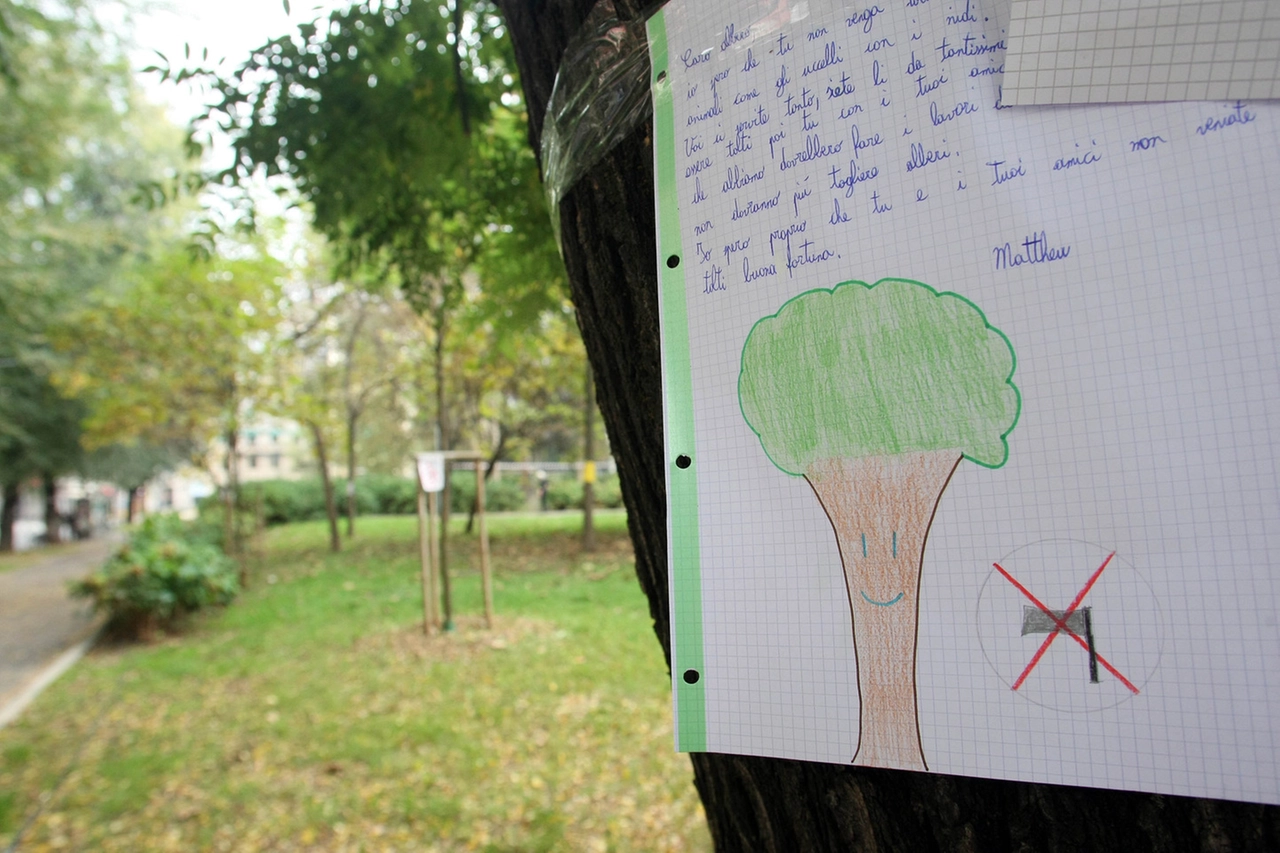 Caro albero
io spero che tu non venga
animali come gli uccelli con i nidi.
Voi ci servite tanto, siete li da tantissimi
essere tolti poi tu con i tuoi amici
che abbiamo dovrebbero fare i lavori
non dovranno più togliere alberi.
Io spero proprio che tu e i tuoi amici non veniate
tolti buona fortuna.
Matthew